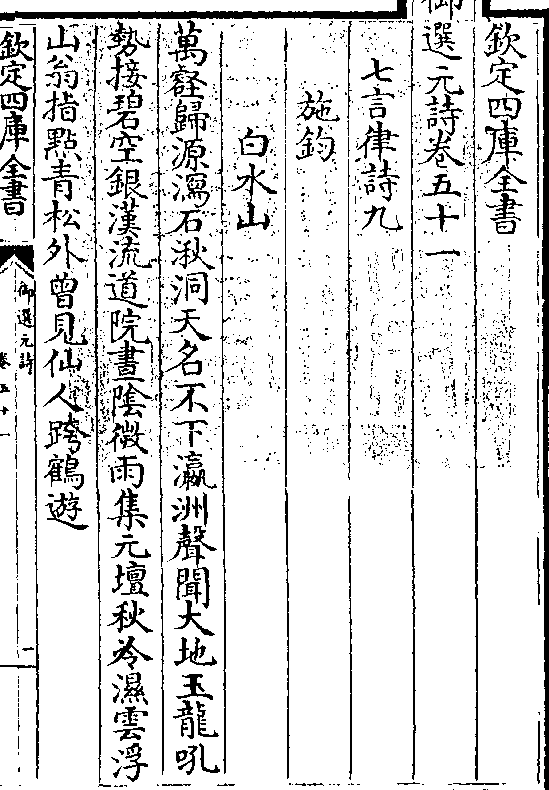 欽定四庫全書
御選元詩卷五十一
七言律詩九
施鈞
白水山
萬壑歸源瀉石湫洞天名不下瀛洲聲聞大地玉龍吼
勢接碧空銀漢流道院晝陰微雨集元壇秋冷濕雲浮
山翁指點青松外曾見仙人跨鶴遊
欽定四庫全書
御選元詩
卷五十一
一